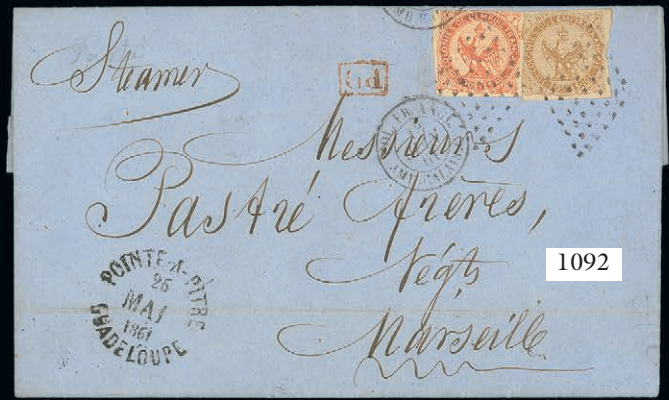 Steamer
P.P.
Messieurs
Pastré frères,
Négts
Marseille
POINTE-A-PITRE
26
MAI
1861
GUADELOUPE
1092